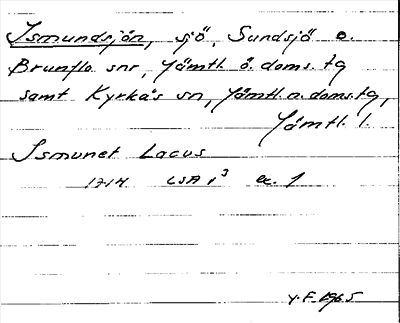 Ismundsjön, sjö, Sundsjö o.
Brunflo snr, Jämtl. ö. doms. tg
samt Kyrkås sn, Jämtl. n. doms. tg,
Jämtl. l.
Ismunet Lacus
1714 LSA 1³ ex. 1
Y.F. 1965